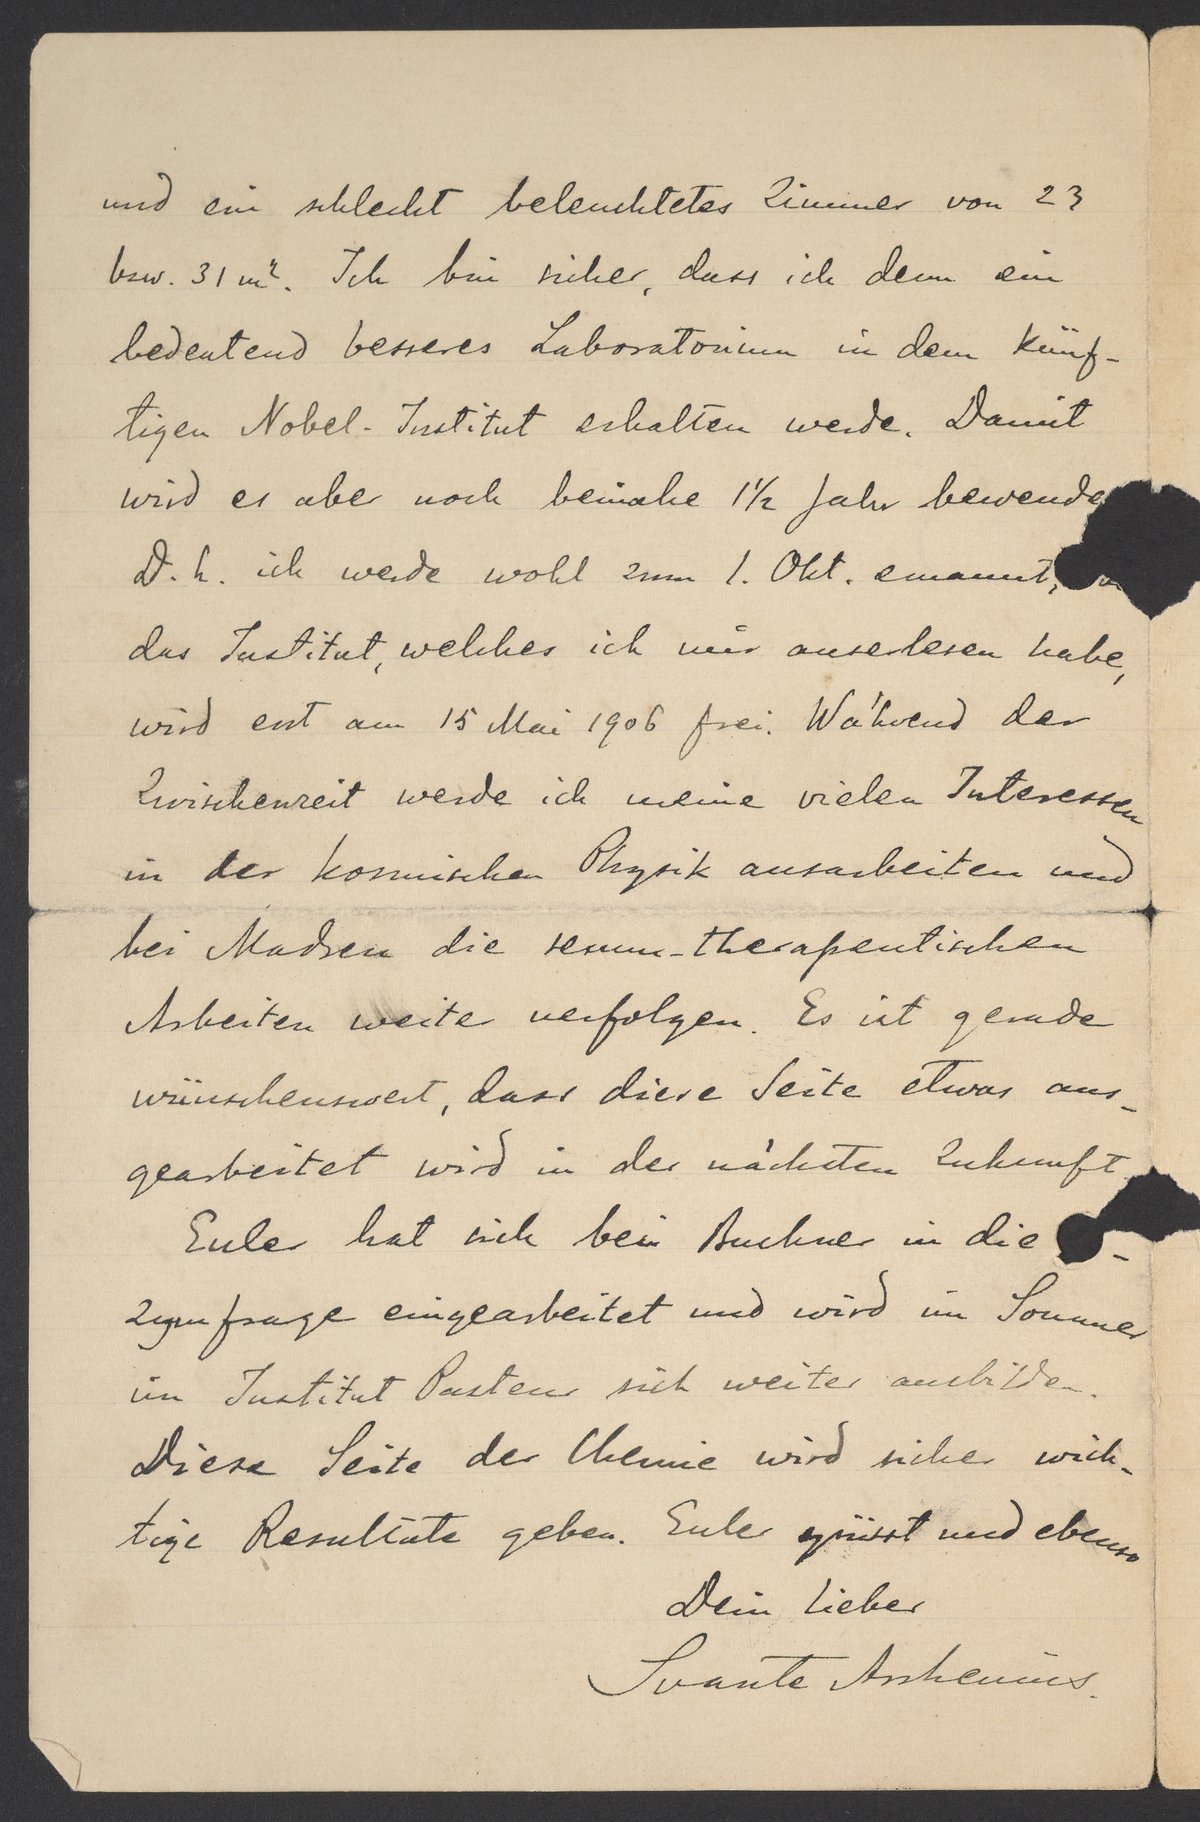 und ein schlecht beleuchtetes Zimmer von 23
bzw. 31 m². Ich bin sicher, dass ich denn ein
bedeutend besseres Laboratorium in dem künf-
tigen Nobel-Institut erhalten werde. Damit
wird es aber noch beinahe 1½ Jahr bewende
D. h. ich werde wohl zum 1. Okt. ernannt,
das Institut, welches ich mir auserlesen habe,
wird erst am 15 Mai 1906 frei. Während der
Zwischenzeit werde ich meine vielen Interessen
in der kosmischen Physik ausarbeiten und
bei Madsen die serum-therapeutischen
Arbeiten weiter verfolgen. Es ist gerade
wünschenswert, dass diese Seite etwas aus-
gearbeitet wird in der nächsten Zukunft
Euler hat sich bei Buchner in die -
zymfrage eingearbeitet und wird im Sommer
im Institut Pasteur sich weiter ausbilden.
Diese Seite der Chemie wird sicher wich-
tige Resultate geben. Euler grüsst und ebenso
Dein lieber
Svante Arrhenius.